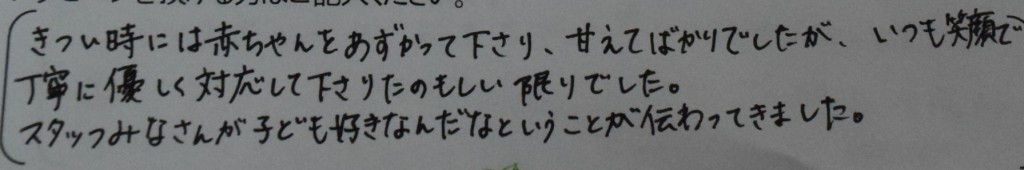 きつい時には赤ちゃんをあずかって下さり、甘えてばかりでしたが、いつも笑顔で
丁寧に優しく対応して下さりたのもしい限りでした。
スタッつみなさんが子ども好きなんだなということが伝わってきました。